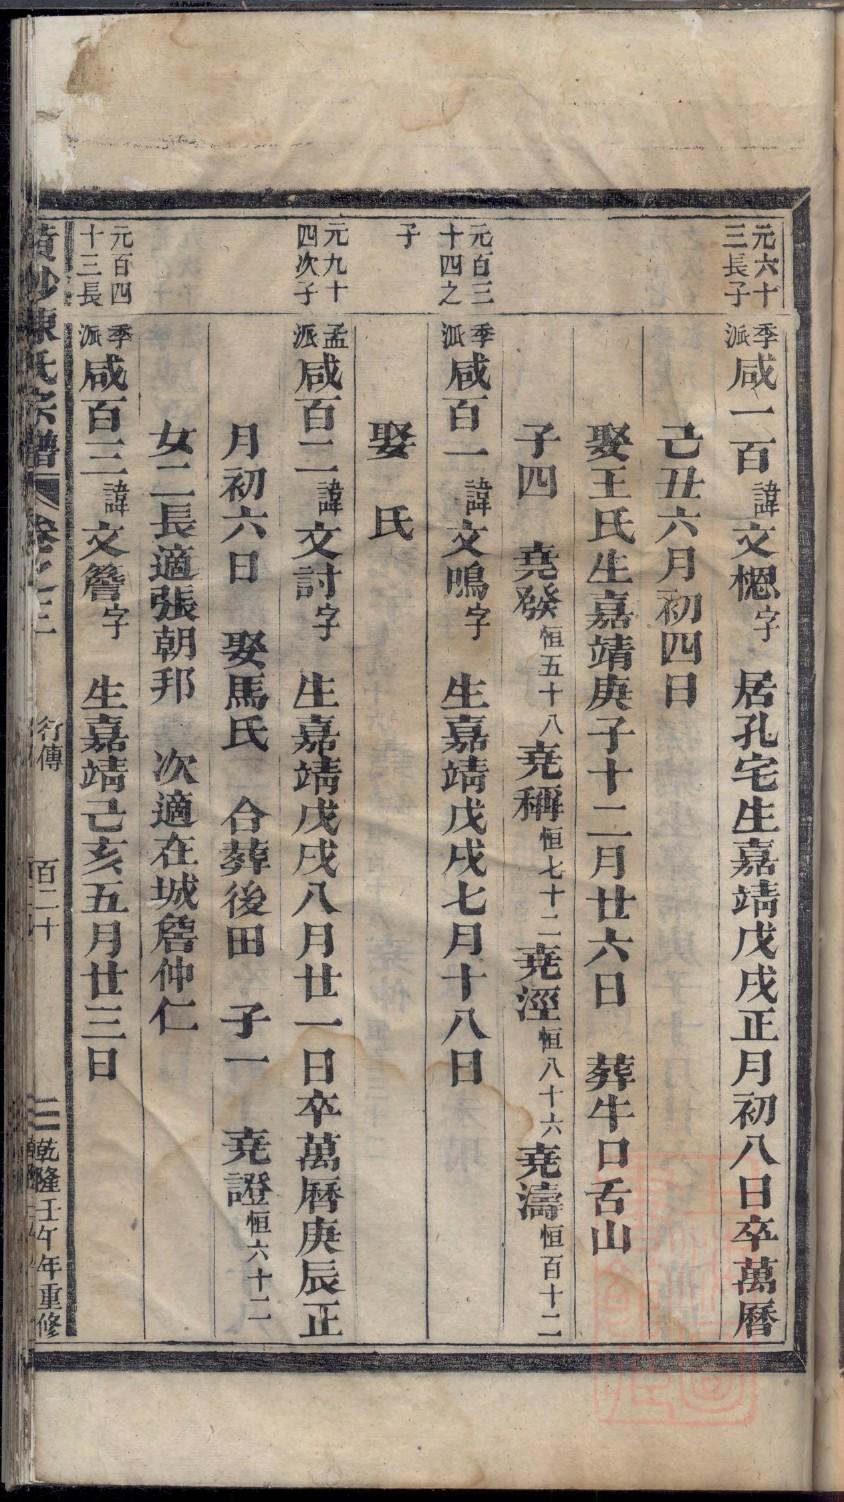 元六十三長子
季派咸一百諱文㮤字　居孔宅生嘉靖戊戌正月初八日卒萬曆
己丑六月初四日
娶王氏生嘉靖庚子十二月廿六日　葬牛口舌山
子四　堯發恒五十八堯稱恒七十二堯溼恒八十六堯濤恒百十二
元百三十四之子
季派咸百一諱文鳴字　生嘉靖戊戌七月十八日
娶　氏
元九十四次子
孟派咸百二諱文討字　生嘉靖戊戌八月廿一日卒萬曆庚辰正
月初六日　娶馬氏　合葬後田　子一　堯證恒六十二
女二長適張朝邦　次適在城詹仲仁
元百四十三長
季派咸百三諱文簷字　生嘉靖己亥五月廿三日
陳氏宗譜　卷之三　行傳　百二十　乾隆壬午年重修